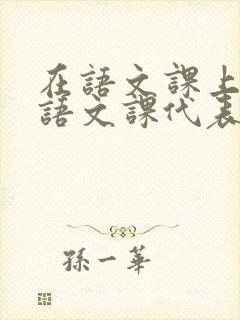 在語文課上
語文課代表
孫一華